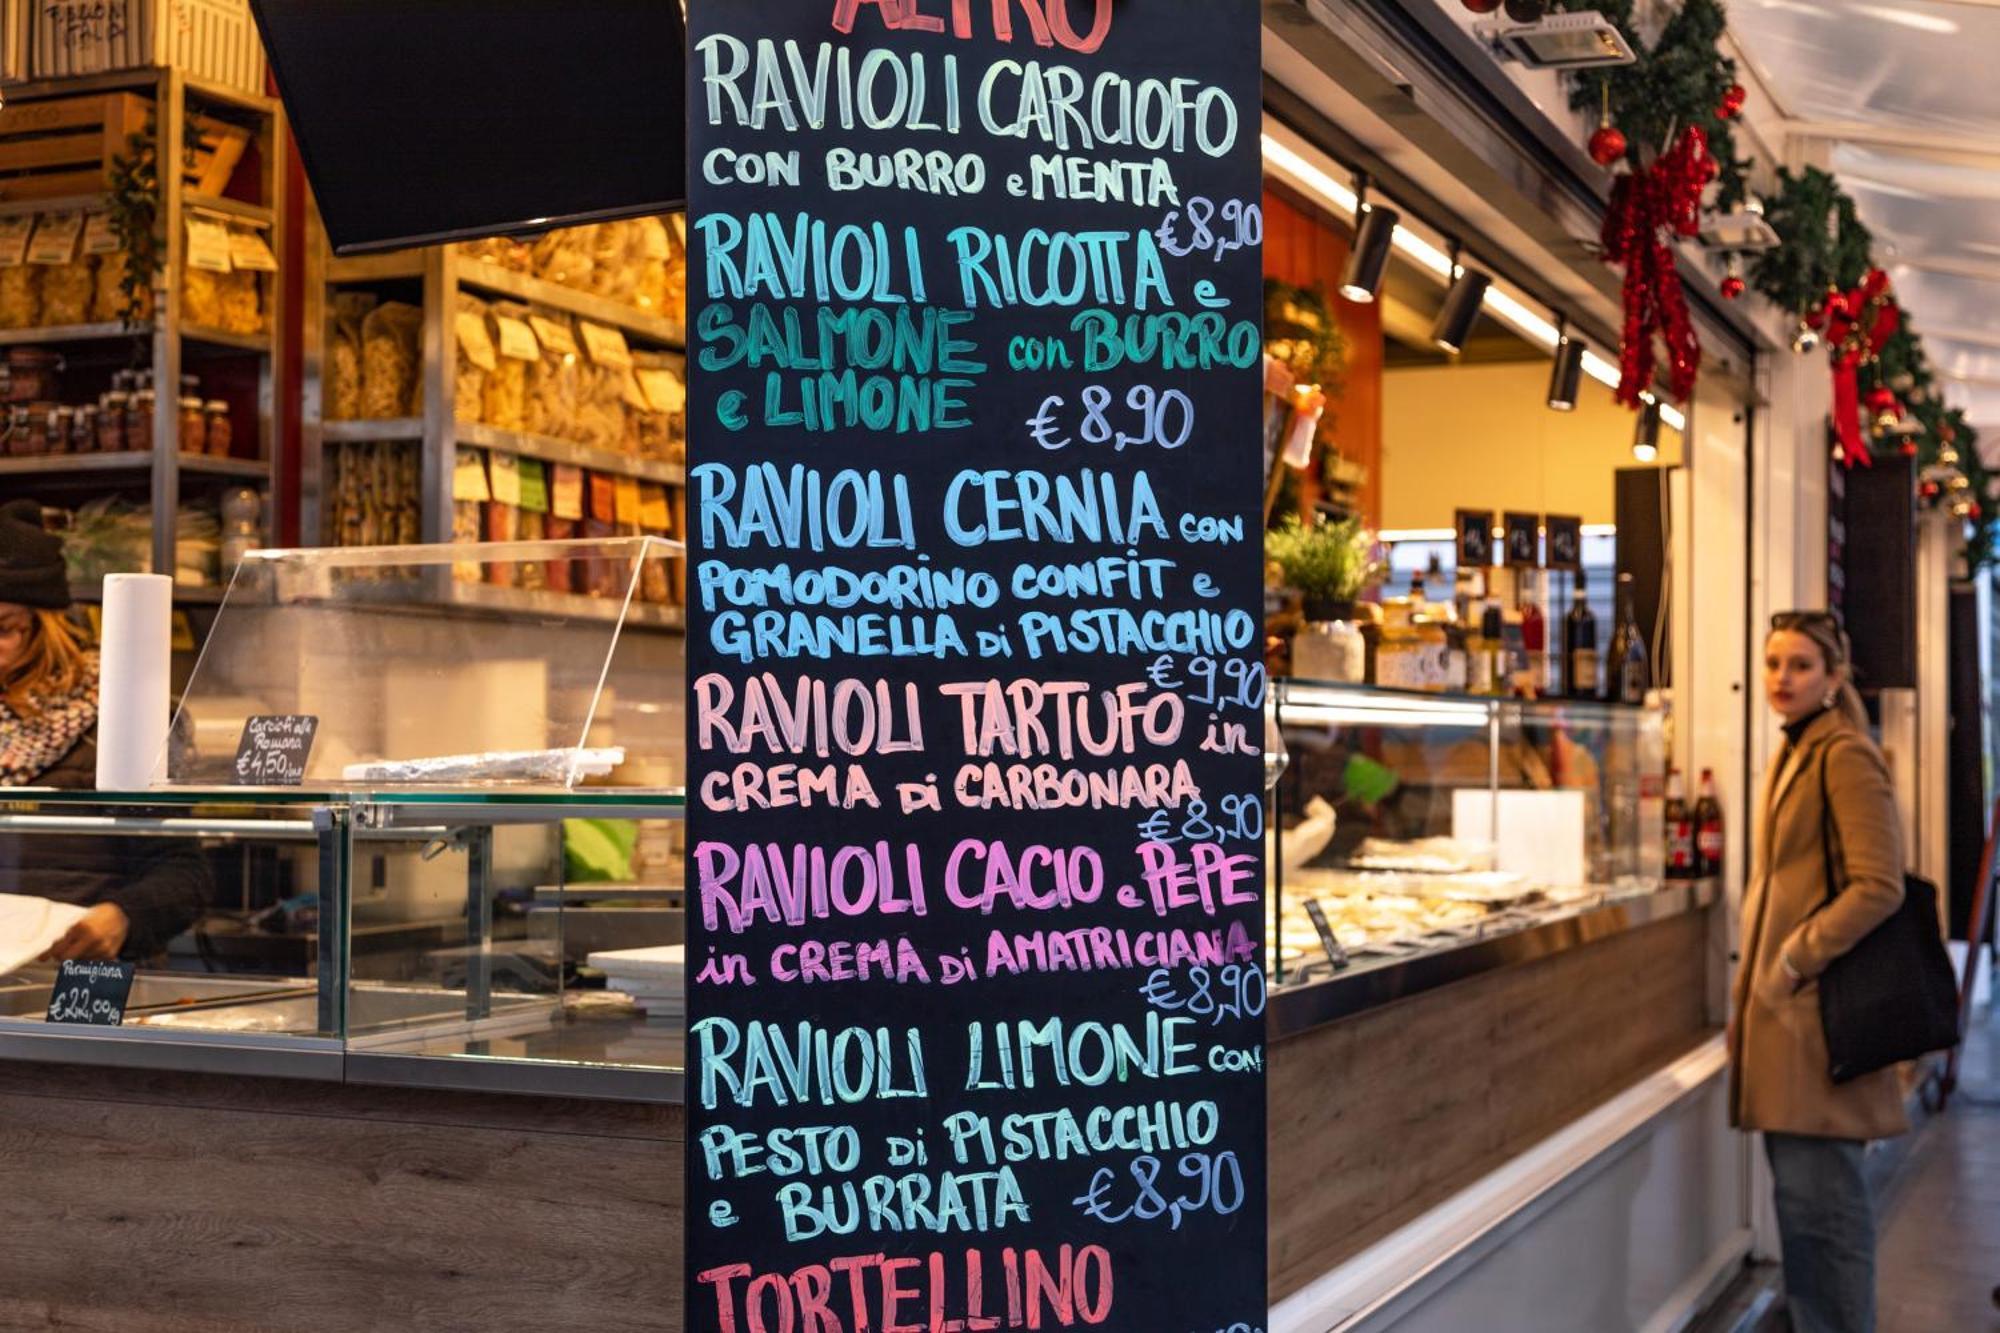 ALTRO
RAVIOLI CARCIOFO
CON BURRO e MENTA
€8,90
RAVIOLI RICOTTA e
SALMONE con BURRO
e LIMONE €8,90
RAVIOLI CERNIA con
POMODORINO CONFIT e
GRANELLA Di PISTACCHIO
€9,90
RAVIOLI TARTUFO in
CREMA Di CARBONARA
€8,90
RAVIOLI CACIO e PEPE
in CREMA Di AMATRICIANA
€8,90
RAVIOLI LIMONE con
PESTO Di PISTACCHIO
e BURRATA €8,90
TORTELLINO
Carciofi alla
Romana
€4,50
Parmigiana
€22,00